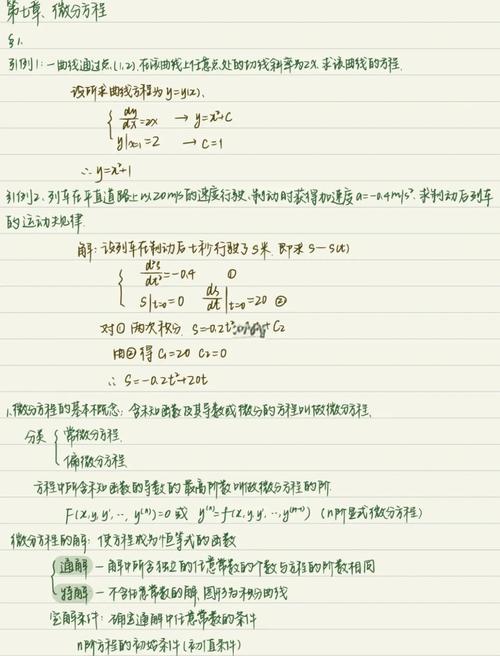 第七章、微分方程
§1.
引例1:一曲线通过点(1,2),在该曲线上任意点处的切线斜率为2x,求该曲线的方程.
设所求曲线方程为y=y(x),
{ dy/dx=2x → y=x²+C
y|x=1=2 → C=1
∴ y=x²+1
引例2.列车在平直道路上以20m/s的速度行驶,制动时获得加速度a=-0.4m/s²,求制动后列车
的运动规律.
解:设列车在制动后t秒行驶了s米,即求s=s(t)
{ d²s/dt²=-0.4 ①
s|t=0=0 ds/dt|t=0=20 ②
对①两次积分,s=-0.2t²+C₂
由②得 C₁=20 C₂=0
∴ s=-0.2t²+20t
1.微分方程的基本概念:含未知函数及其导数或微分的方程叫做微分方程.
分类 { 常微分方程.
偏微分方程.
方程中所含未知函数的导数的最高阶数叫做微分方程的阶.
F(x,y,y',…,y⁽ⁿ⁾)=0 或 y⁽ⁿ⁾=f(x,y,y',…,y⁽ⁿ⁻¹⁾) (n阶显式微分方程)
微分方程的解:使方程成为恒等式的函数
{ 通解-解中所含独立的任意常数的个数与方程的阶数相同
特解-不含任意常数的解,图形为积分曲线
定解条件:确定通解中任意常数的条件
n阶方程的初始条件(初值条件)